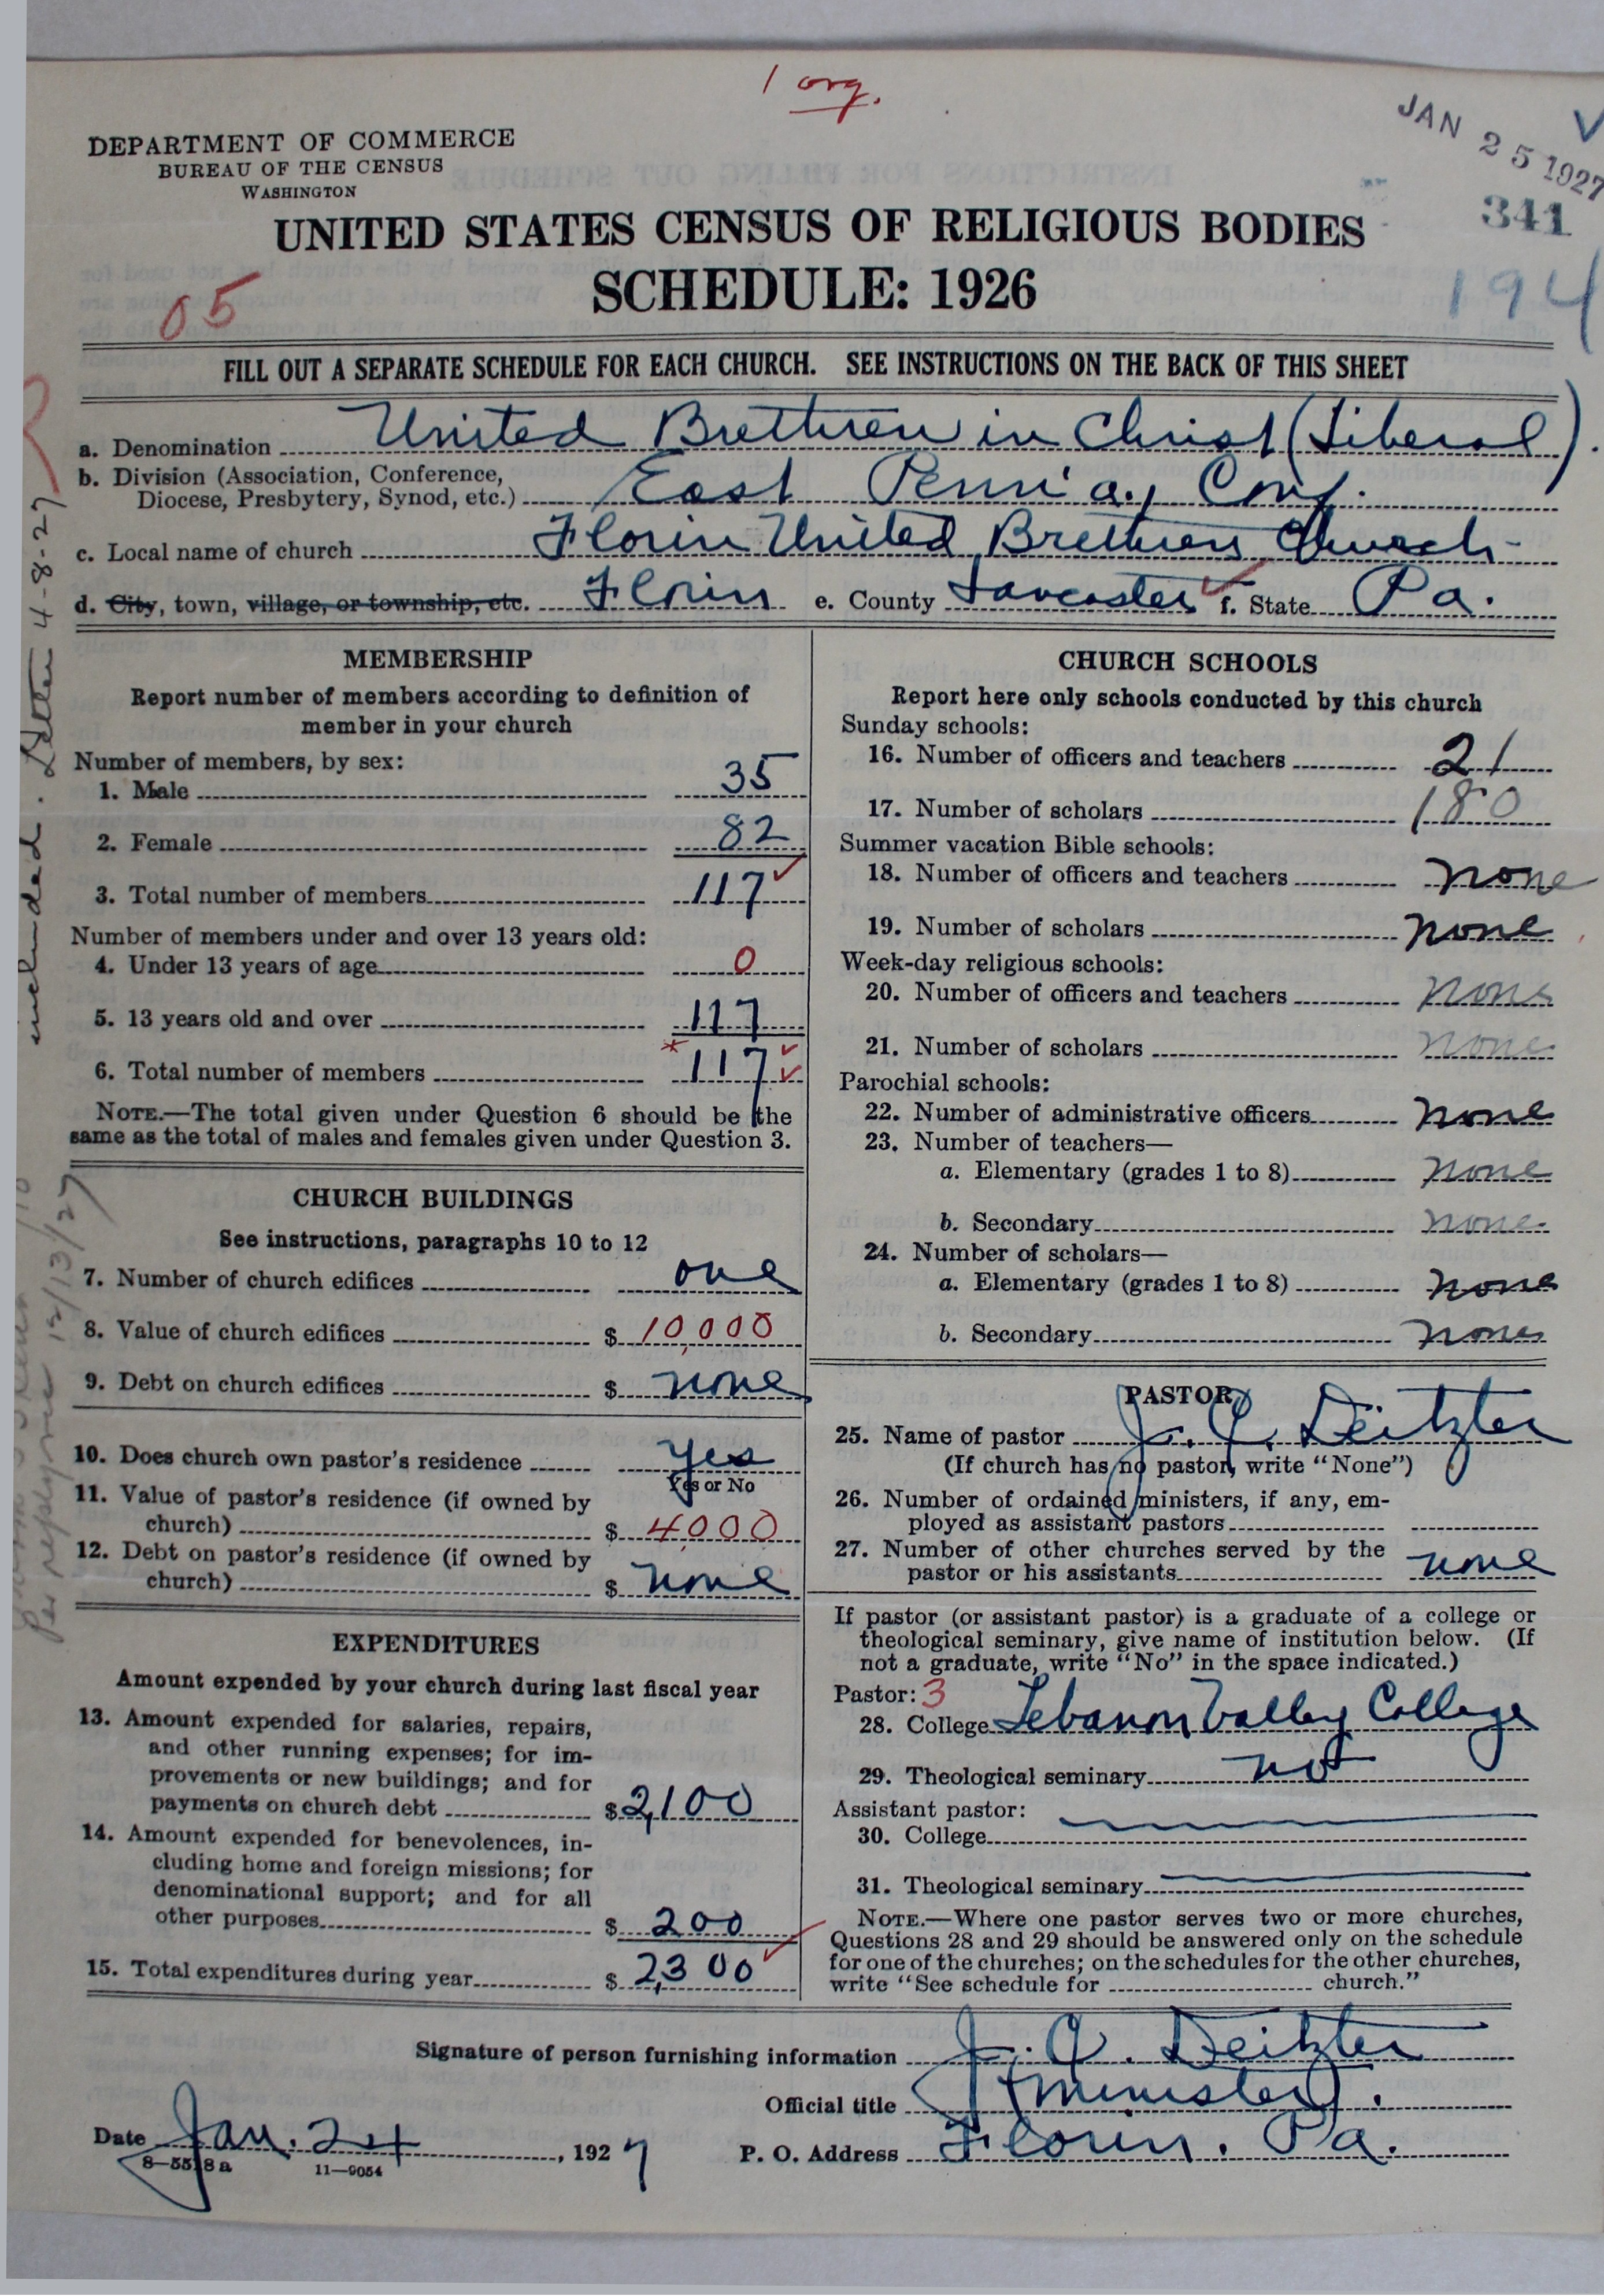 1 org.
JAN 25 1927
DEPARTMENT OF COMMERCE
BUREAU OF THE CENSUS
WASHINGTON
341
UNITED STATES CENSUS OF RELIGIOUS BODIES
SCHEDULE: 1926
194
05
FILL OUT A SEPARATE SCHEDULE FOR EACH CHURCH. SEE INSTRUCTIONS ON THE BACK OF THIS SHEET
a. Denomination United Brethren in Christ (Liberal).
b. Division (Association, Conference,
Diocese, Presbytery, Synod, etc.) East Penn'a., Conf.
c. Local name of church Florin United Brethren Church
d. City, town, village, or township, etc. Florin e. County Lancaster f. State Pa.
MEMBERSHIP
Report number of members according to definition of
member in your church
Number of members, by sex:
1. Male 35
2. Female 82
3. Total number of members 117
Number of members under and over 13 years old:
4. Under 13 years of age 0
5. 13 years old and over 117
6. Total number of members * 117
NOTE.—The total given under Question 6 should be the
same as the total of males and females given under Question 3.
CHURCH BUILDINGS
See instructions, paragraphs 10 to 12
7. Number of church edifices one
8. Value of church edifices $ 10,000
9. Debt on church edifices $ none
10. Does church own pastor's residence yes
Yes or No
11. Value of pastor's residence (if owned by
church) $ 4,000
12. Debt on pastor's residence (if owned by
church) $ none
EXPENDITURES
Amount expended by your church during last fiscal year
13. Amount expended for salaries, repairs,
and other running expenses; for im-
provements or new buildings; and for
payments on church debt $ 2,100
14. Amount expended for benevolences, in-
cluding home and foreign missions; for
denominational support; and for all
other purposes $ 200
15. Total expenditures during year $ 2,300
CHURCH SCHOOLS
Report here only schools conducted by this church
Sunday schools:
16. Number of officers and teachers 21
17. Number of scholars 180
Summer vacation Bible schools:
18. Number of officers and teachers none
19. Number of scholars none
Week-day religious schools:
20. Number of officers and teachers none
21. Number of scholars none
Parochial schools:
22. Number of administrative officers none
23. Number of teachers—
a. Elementary (grades 1 to 8) none
b. Secondary none
24. Number of scholars—
a. Elementary (grades 1 to 8) none
b. Secondary none
PASTOR
25. Name of pastor J. Q. Deitzler
(If church has no pastor, write "None")
26. Number of ordained ministers, if any, em-
ployed as assistant pastors
27. Number of other churches served by the
pastor or his assistants none
If pastor (or assistant pastor) is a graduate of a college or
theological seminary, give name of institution below. (If
not a graduate, write "No" in the space indicated.)
Pastor: 3
28. College Lebanon Valley College
29. Theological seminary not
Assistant pastor:
30. College
31. Theological seminary
NOTE.—Where one pastor serves two or more churches,
Questions 28 and 29 should be answered only on the schedule
for one of the churches; on the schedules for the other churches,
write "See schedule for church."
Signature of person furnishing information J. Q. Deitzler
Official title (Minister).
Date Jan. 24, 1927 P. O. Address Florin. Pa.
8—5518a 11—9054
included. Letter 4-8-27
Per reply 12/13/27